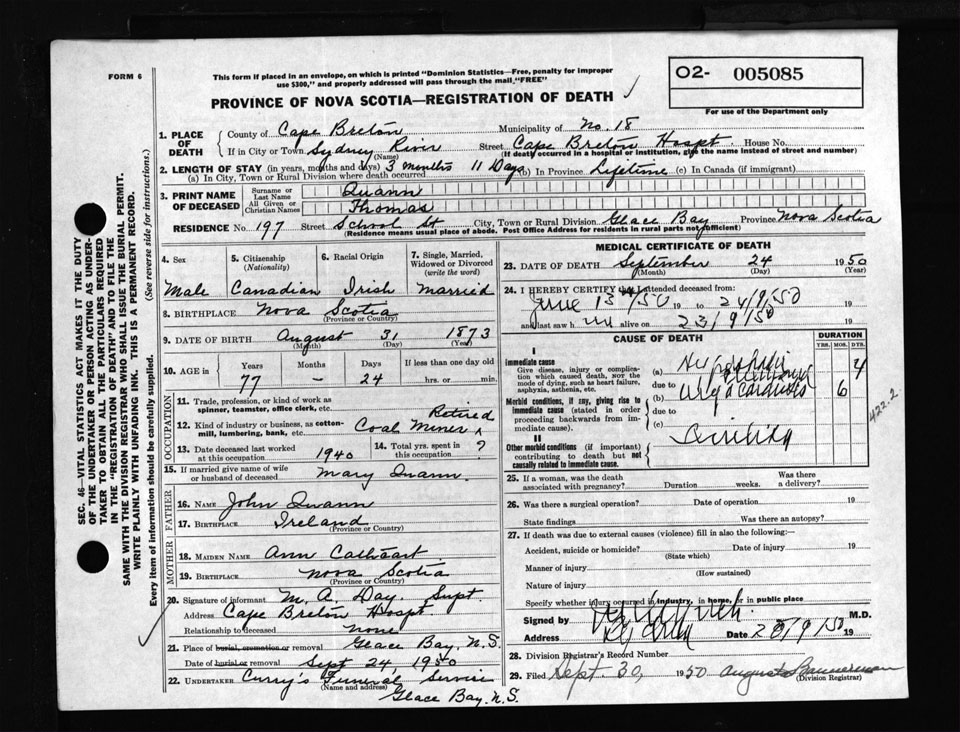 FORM 6
This form if placed in an envelope, on which is printed "Dominion Statistics—Free, penalty for improper
use $300," and properly addressed will pass through the mail "FREE"
O2- 005085
For use of the Department only
PROVINCE OF NOVA SCOTIA—REGISTRATION OF DEATH
SEC. 46—VITAL STATISTICS ACT MAKES IT THE DUTY
OF THE UNDERTAKER OR PERSON ACTING AS UNDER-
TAKER TO OBTAIN ALL THE PARTICULARS REQUIRED
IN THE "REGISTRATION OF DEATH" AND TO FILE THE
SAME WITH THE DIVISION REGISTRAR WHO SHALL ISSUE THE BURIAL PERMIT.
WRITE PLAINLY WITH UNFADING INK. THIS IS A PERMANENT RECORD.
Every item of information should be carefully supplied. (See reverse side for instructions.)
1. PLACE OF DEATH
County of Cape Breton Municipality of No. 18
If in City or Town Sydney River (Name) Street Cape Breton Hospt House No.
(If death occurred in a hospital or institution, give the name instead of street and number)
2. LENGTH OF STAY (in years, months and days)
(a) In City, Town or Rural Division where death occurred 3 months 11 Days (b) In Province Lifetime (c) In Canada (if immigrant)
3. PRINT NAME OF DECEASED
Surname or Last Name Quann
All Given or Christian Names Thomas
RESIDENCE No. 197 Street School St City, Town or Rural Division Glace Bay Province Nova Scotia
(Residence means usual place of abode. Post Office Address for residents in rural parts not sufficient)
4. Sex Male
5. Citizenship (Nationality) Canadian
6. Racial Origin Irish
7. Single, Married, Widowed or Divorced (write the word) Married
8. BIRTHPLACE Nova Scotia
(Province or Country)
9. DATE OF BIRTH August 31 1873
(Month) (Day) (Year)
10. AGE in Years 77 Months — Days 24 If less than one day old hrs. or min.
OCCUPATION
11. Trade, profession, or kind of work as spinner, teamster, office clerk, etc.
12. Kind of industry or business, as cotton-mill, lumbering, bank, etc. Coal Miner Retired
13. Date deceased last worked at this occupation 1940
14. Total yrs. spent in this occupation ?
15. If married give name of wife or husband of deceased Mary Quann
FATHER
16. NAME John Quann
17. BIRTHPLACE Ireland
(Province or Country)
MOTHER
18. MAIDEN NAME Ann Cathcart
19. BIRTHPLACE Nova Scotia
(Province or Country)
20. Signature of informant M. A. Day. Supt.
Address Cape Breton Hospt
Relationship to deceased None
21. Place of burial, cremation or removal Glace Bay, N.S.
Date of burial or removal Sept 24, 1950
22. UNDERTAKER Curry's Funeral Service
(Name and address)
Glace Bay. N.S.
MEDICAL CERTIFICATE OF DEATH
23. DATE OF DEATH September 24 1950
(Month) (Day) (Year)
24. I HEREBY CERTIFY that I attended deceased from:
June 13th/50 19 to 24/9/50 19
and last saw h im alive on 23/9/50 19
CAUSE OF DEATH
DURATION
YRS. MOS. DYS.
I
Immediate cause
Give disease, injury or complication which caused death, not the mode of dying, such as heart failure, asphyxia, asthenia, etc.
(a) 4
due to
Morbid conditions, if any, giving rise to immediate cause (stated in order proceeding backwards from immediate cause).
(b) 6
due to
(c)
422.2
II
Other morbid conditions (if important) contributing to death but not causally related to immediate cause.
Senility
25. If a woman, was the death associated with pregnancy? Duration weeks. Was there a delivery?
26. Was there a surgical operation? Date of operation 19
State findings Was there an autopsy?
27. If death was due to external causes (violence) fill in also the following:
Accident, suicide or homicide? Date of injury 19
(State which)
Manner of injury
(How sustained)
Nature of injury
Specify whether injury occurred in industry, in home, or in public place
Signed by M.D.
Address Date 28/9/50 19
28. Division Registrar's Record Number
29. Filed Sept. 30, 1950 Augusta Bannerman
(Division Registrar)